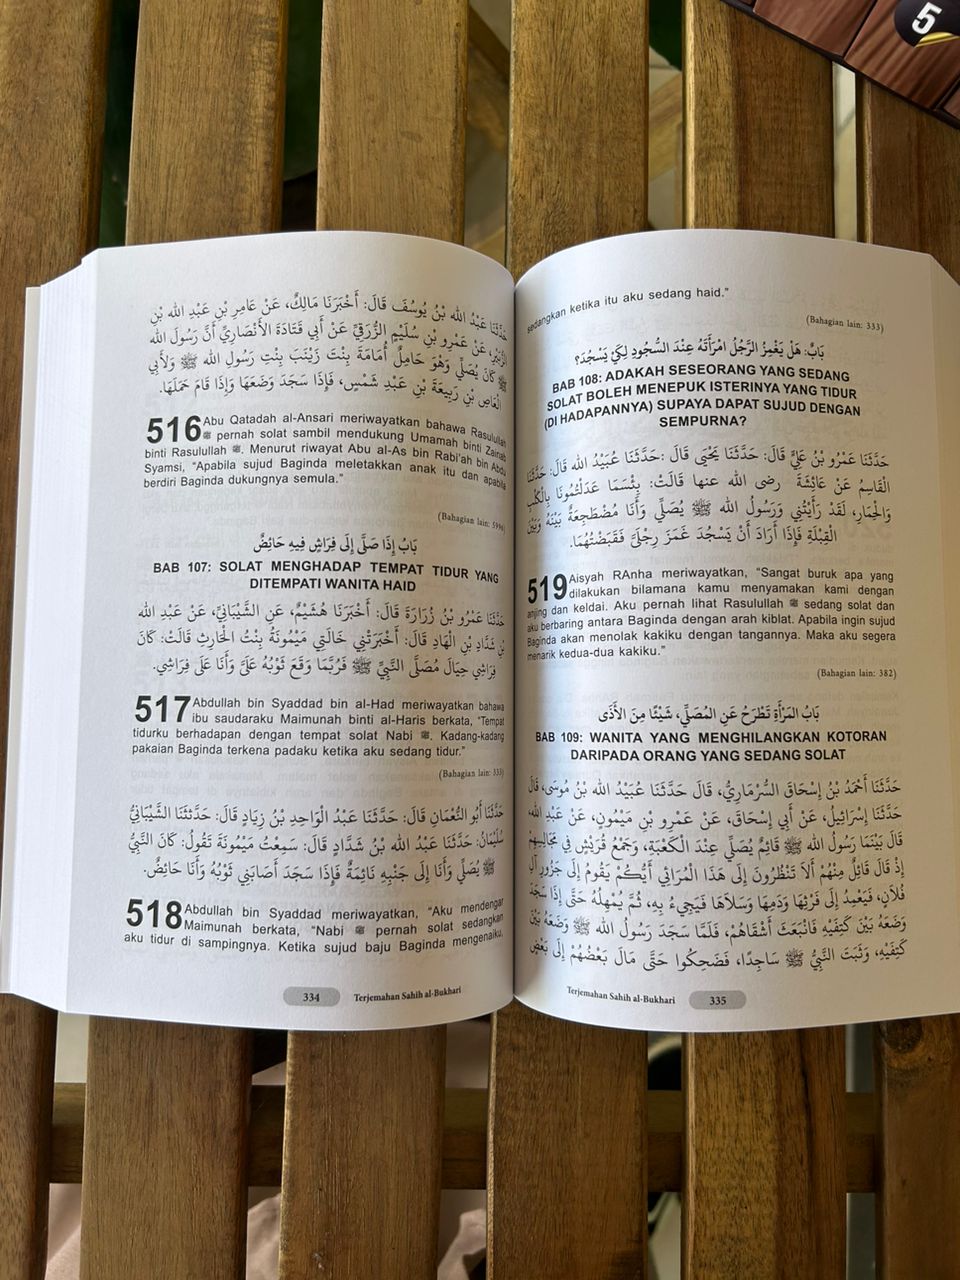 حَدَّثَنَا عَبْدُ الله بْنُ يُوسُفَ قَالَ: أَخْبَرَنَا مَالِكٌ، عَنْ عَامِرِ بْنِ عَبْدِ الله بْنِ
الزُّبَيْرِ، عَنْ عَمْرِو بْنِ سُلَيْمٍ الزُّرَقِيِّ عَنْ أَبِي قَتَادَةَ الأَنْصَارِيِّ أَنَّ رَسُولَ الله
ﷺ كَانَ يُصَلِّي وَهُوَ حَامِلٌ أُمَامَةَ بِنْتَ زَيْنَبَ بِنْتِ رَسُولِ الله ﷺ وَلأَبِي
الْعَاصِ بْنِ رَبِيعَةَ بْنِ عَبْدِ شَمْسٍ، فَإِذَا سَجَدَ وَضَعَهَا وَإِذَا قَامَ حَمَلَهَا.
516 Abu Qatadah al-Ansari meriwayatkan bahawa Rasulullah
ﷺ pernah solat sambil mendukung Umamah binti Zainab
binti Rasulullah ﷺ. Menurut riwayat Abu al-As bin Rabi'ah bin Abdu
Syamsi, “Apabila sujud Baginda meletakkan anak itu dan apabila
berdiri Baginda dukungnya semula.”
(Bahagian lain: 5996)
بَابُ إِذَا صَلَّى إِلَى فِرَاشٍ فِيهِ حَائِضٌ
BAB 107: SOLAT MENGHADAP TEMPAT TIDUR YANG
DITEMPATI WANITA HAID
حَدَّثَنَا عَمْرُو بْنُ زُرَارَةَ قَالَ: أَخْبَرَنَا هُشَيْمٌ، عَنِ الشَّيْبَانِيِّ، عَنْ عَبْدِ الله
بْنِ شَدَّادِ بْنِ الْهَادِ قَالَ: أَخْبَرَتْنِي خَالَتِي مَيْمُونَةُ بِنْتُ الْحَارِثِ قَالَتْ: كَانَ
فِرَاشِي حِيَالَ مُصَلَّى النَّبِيِّ ﷺ فَرُبَّمَا وَقَعَ ثَوْبُهُ عَلَيَّ وَأَنَا عَلَى فِرَاشِي.
517 Abdullah bin Syaddad bin al-Had meriwayatkan bahawa
ibu saudaraku Maimunah binti al-Haris berkata, “Tempat
tidurku berhadapan dengan tempat solat Nabi ﷺ. Kadang-kadang
pakaian Baginda terkena padaku ketika aku sedang tidur.”
(Bahagian lain: 333)
حَدَّثَنَا أَبُو النُّعْمَانِ قَالَ: حَدَّثَنَا عَبْدُ الْوَاحِدِ بْنُ زِيَادٍ قَالَ: حَدَّثَنَا الشَّيْبَانِيُّ
سُلَيْمَانُ: حَدَّثَنَا عَبْدُ الله بْنُ شَدَّادٍ قَالَ: سَمِعْتُ مَيْمُونَةَ تَقُولُ: كَانَ النَّبِيُّ
ﷺ يُصَلِّي وَأَنَا إِلَى جَنْبِهِ نَائِمَةٌ فَإِذَا سَجَدَ أَصَابَنِي ثَوْبُهُ وَأَنَا حَائِضٌ.
518 Abdullah bin Syaddad meriwayatkan, “Aku mendengar
Maimunah berkata, “Nabi ﷺ pernah solat sedangkan
aku tidur di sampingnya. Ketika sujud baju Baginda mengenaiku,
334 Terjemahan Sahih al-Bukhari
sedangkan ketika itu aku sedang haid.”
(Bahagian lain: 333)
بَابٌ: هَلْ يَغْمِزُ الرَّجُلُ امْرَأَتَهُ عِنْدَ السُّجُودِ لِكَيْ يَسْجُدَ؟
BAB 108: ADAKAH SESEORANG YANG SEDANG
SOLAT BOLEH MENEPUK ISTERINYA YANG TIDUR
(DI HADAPANNYA) SUPAYA DAPAT SUJUD DENGAN
SEMPURNA?
حَدَّثَنَا عَمْرُو بْنُ عَلِيٍّ قَالَ: حَدَّثَنَا يَحْيَى قَالَ: حَدَّثَنَا عُبَيْدُ الله قَالَ: حَدَّثَنَا
الْقَاسِمُ عَنْ عَائِشَةَ رضى الله عنها قَالَتْ: بِئْسَمَا عَدَلْتُمُونَا بِالْكَلْبِ
وَالْحِمَارِ، لَقَدْ رَأَيْتُنِي وَرَسُولُ الله ﷺ يُصَلِّي وَأَنَا مُضْطَجِعَةٌ بَيْنَهُ وَبَيْنَ
الْقِبْلَةِ فَإِذَا أَرَادَ أَنْ يَسْجُدَ غَمَزَ رِجْلَيَّ فَقَبَضْتُهُمَا.
519 Aisyah RAnha meriwayatkan, “Sangat buruk apa yang
dilakukan bilamana kamu menyamakan kami dengan
anjing dan keldai. Aku pernah lihat Rasulullah ﷺ sedang solat dan
aku berbaring antara Baginda dengan arah kiblat. Apabila ingin sujud
Baginda akan menolak kakiku dengan tangannya. Maka aku segera
menarik kedua-dua kakiku.”
(Bahagian lain: 382)
بَابُ المَرْأَةِ تَطْرَحُ عَنِ المُصَلِّي، شَيْئًا مِنَ الأَذَى
BAB 109: WANITA YANG MENGHILANGKAN KOTORAN
DARIPADA ORANG YANG SEDANG SOLAT
حَدَّثَنَا أَحْمَدُ بْنُ إِسْحَاقَ السُّرْمَارِيُّ، قَالَ حَدَّثَنَا عُبَيْدُ الله بْنُ مُوسَى، قَالَ
حَدَّثَنَا إِسْرَائِيلُ، عَنْ أَبِي إِسْحَاقَ، عَنْ عَمْرِو بْنِ مَيْمُونٍ، عَنْ عَبْدِ الله،
قَالَ بَيْنَمَا رَسُولُ الله ﷺ قَائِمٌ يُصَلِّي عِنْدَ الْكَعْبَةِ، وَجَمْعُ قُرَيْشٍ فِي مَجَالِسِهِمْ
إِذْ قَالَ قَائِلٌ مِنْهُمْ أَلاَ تَنْظُرُونَ إِلَى هَذَا الْمُرَائِي أَيُّكُمْ يَقُومُ إِلَى جَزُورِ آلِ
فُلاَنٍ، فَيَعْمِدُ إِلَى فَرْثِهَا وَدَمِهَا وَسَلاَهَا فَيَجِيءُ بِهِ، ثُمَّ يُمْهِلُهُ حَتَّى إِذَا سَجَدَ
وَضَعَهُ بَيْنَ كَتِفَيْهِ فَانْبَعَثَ أَشْقَاهُمْ، فَلَمَّا سَجَدَ رَسُولُ الله ﷺ وَضَعَهُ بَيْنَ
كَتِفَيْهِ، وَثَبَتَ النَّبِيُّ ﷺ سَاجِدًا، فَضَحِكُوا حَتَّى مَالَ بَعْضُهُمْ إِلَى بَعْضٍ
Terjemahan Sahih al-Bukhari 335
5